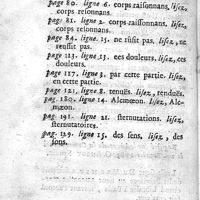 page 80. ligne 6. corps raisonnans. lisez,
corps resonnans.
page 81. ligne 2. corps raisonnans. lisez,
corps resonnans.
page 84. ligne. 15. ne fusit pas. lisez, ne
reusit pas.
page 113. ligne 13. ces douleurs. lisez, ces
douleurs.
page 117. ligne 3. par cette partie. lisez,
en cette partie.
page 121. ligne 8. tenués. lisez, renduës.
pag. 180. ligne 14. Alcmœon. lisez, Alc-
mæon.
pag. 191. ligne 21. sternutations. lisez,
sternutatoires.
pag. 129. ligne 15. des sens, lisez, des
sons.